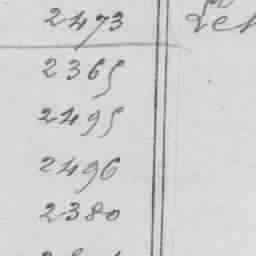 2473
2365
2495
2496
2380